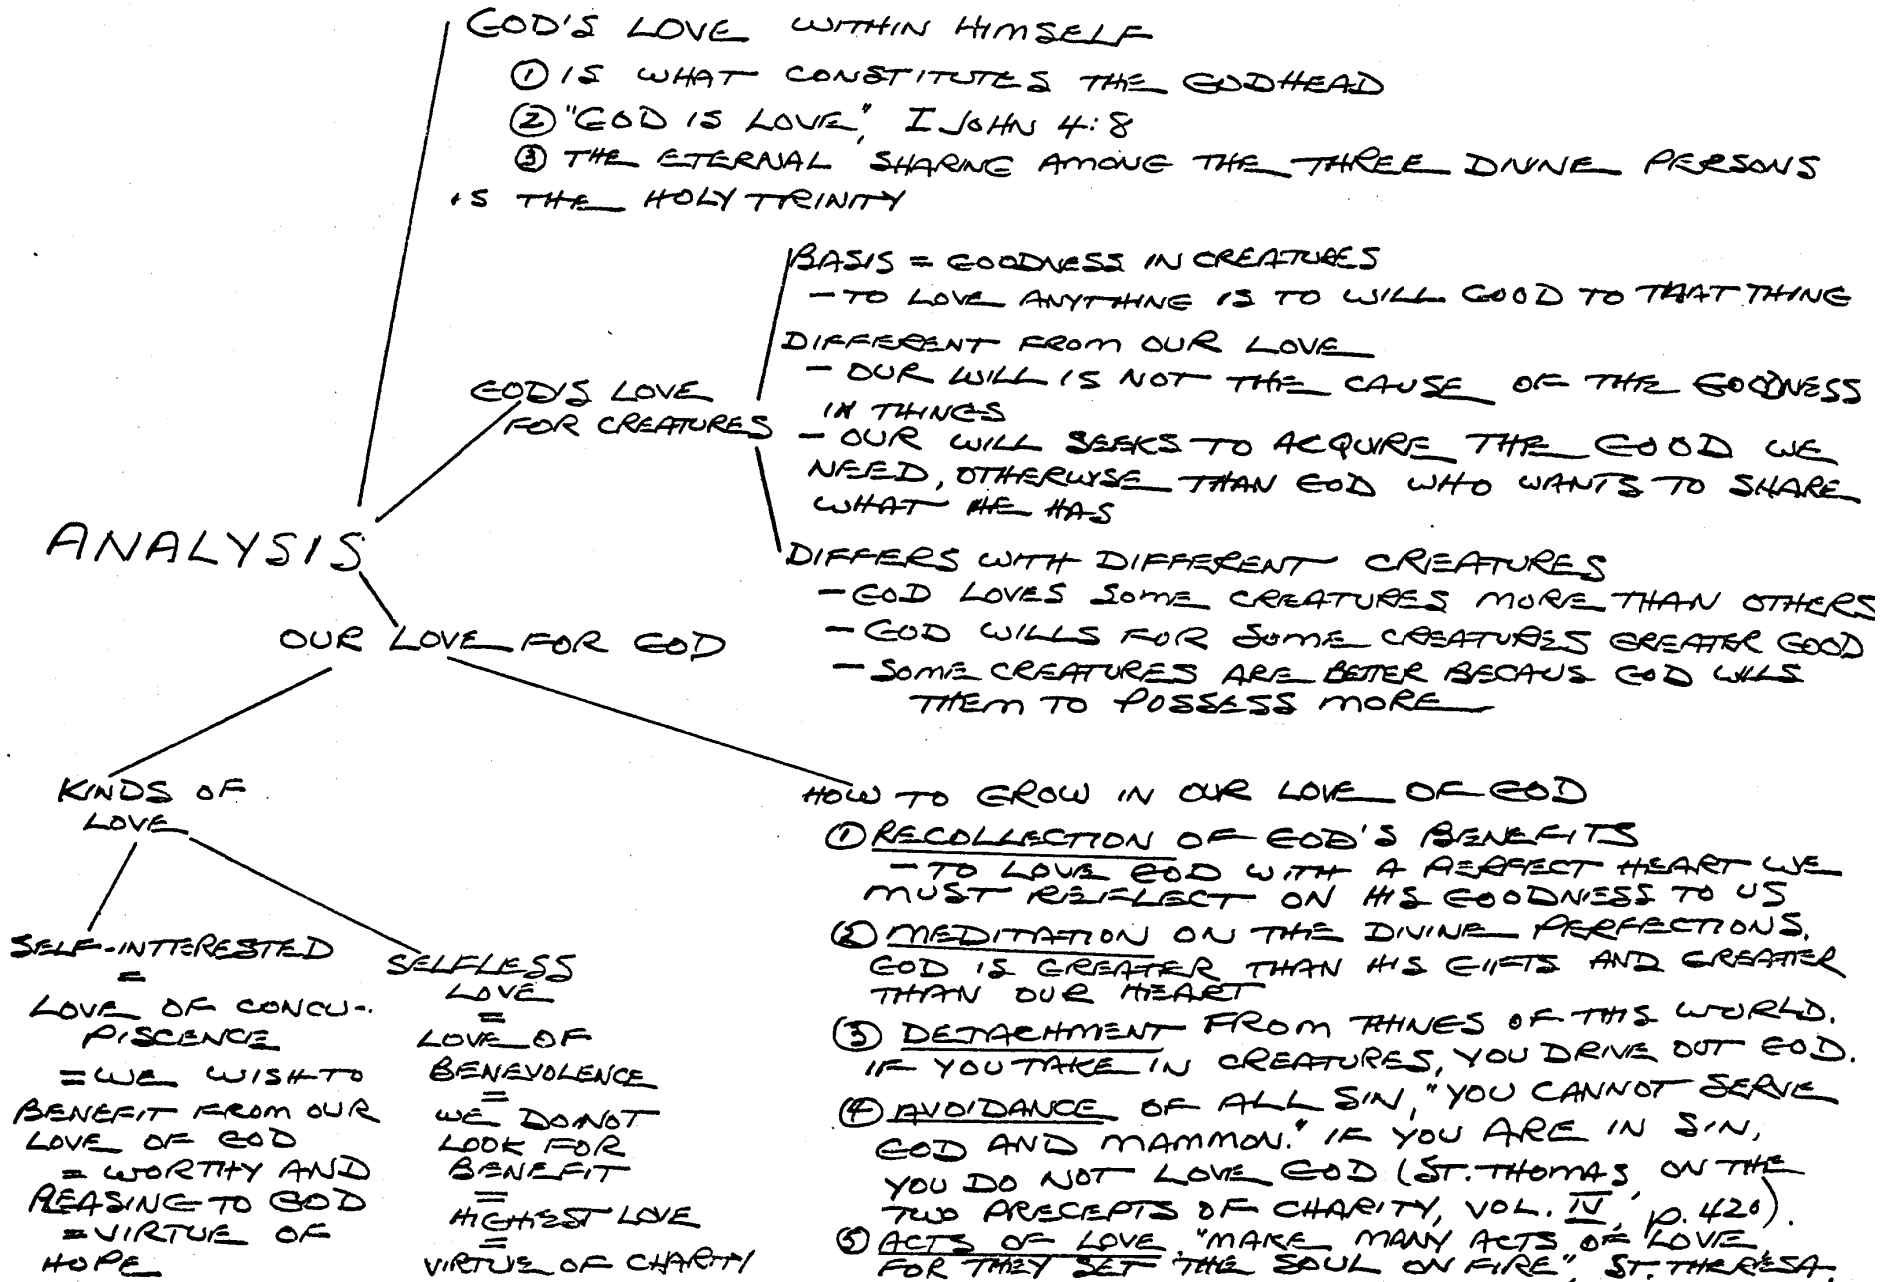 GOD'S LOVE WITHIN HIMSELF
① IS WHAT CONSTITUTES THE GODHEAD
② "GOD IS LOVE", I JOHN 4:8
③ THE ETERNAL SHARING AMONG THE THREE DIVINE PERSONS
IS THE HOLY TRINITY
BASIS = GOODNESS IN CREATURES
- TO LOVE ANYTHING IS TO WILL GOOD TO THAT THING
DIFFERENT FROM OUR LOVE
- OUR WILL IS NOT THE CAUSE OF THE GOODNESS
IN THINGS
- OUR WILL SEEKS TO ACQUIRE THE GOOD WE
NEED, OTHERWYSE THAN GOD WHO WANTS TO SHARE
WHAT HE HAS
GOD'S LOVE
FOR CREATURES
DIFFERS WITH DIFFERENT CREATURES
- GOD LOVES SOME CREATURES MORE THAN OTHERS
- GOD WILLS FOR SOME CREATURES GREATER GOOD
- SOME CREATURES ARE BETTER BECAUS GOD WILLS
THEM TO POSSESS MORE
ANALYSIS
OUR LOVE FOR GOD
KINDS OF
LOVE
SELF-INTERESTED
=
LOVE OF CONCU-
PISCENCE
= WE WISH TO
BENEFIT FROM OUR
LOVE OF GOD
= WORTHY AND
PLEASING TO GOD
= VIRTUE OF
HOPE
SELFLESS
LOVE
=
LOVE OF
BENEVOLENCE
=
WE DO NOT
LOOK FOR
BENEFIT
=
HIGHEST LOVE
=
VIRTUE OF CHARITY
HOW TO GROW IN OUR LOVE OF GOD
① RECOLLECTION OF GOD'S BENEFITS
- TO LOVE GOD WITH A PERFECT HEART WE
MUST REFLECT ON HIS GOODNESS TO US
② MEDITATION ON THE DIVINE PERFECTIONS.
GOD IS GREATER THAN HIS GIFTS AND GREATER
THAN OUR HEART
③ DETACHMENT FROM THINGS OF THIS WORLD.
IF YOU TAKE IN CREATURES, YOU DRIVE OUT GOD.
④ AVOIDANCE OF ALL SIN, "YOU CANNOT SERVE
GOD AND MAMMON." IF YOU ARE IN SIN,
YOU DO NOT LOVE GOD (ST. THOMAS, ON THE
TWO PRECEPTS OF CHARITY, VOL. IV, p. 420).
⑤ ACTS OF LOVE, "MAKE MANY ACTS OF LOVE
FOR THEY SET THE SOUL ON FIRE", ST. THERESA.